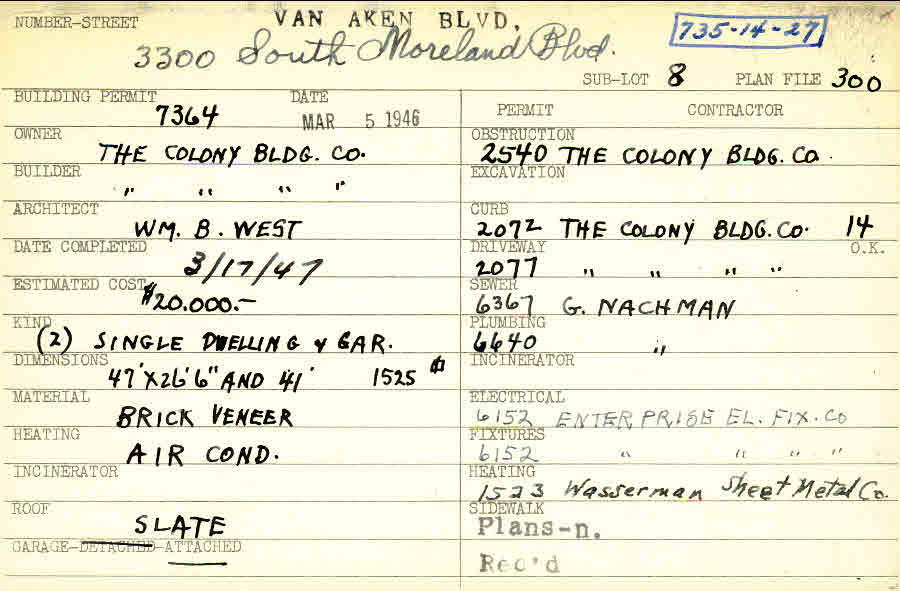 NUMBER—STREET VAN AKEN BLVD,
3300 South Moreland Blvd. 735-14-27
SUB-LOT 8 PLAN FILE 300
BUILDING PERMIT DATE
7364 MAR 5 1946
OWNER
THE COLONY BLDG. CO.
BUILDER
" " " "
ARCHITECT
WM. B. WEST
DATE COMPLETED
3/17/47
ESTIMATED COST
$20.000.—
KIND
(2) SINGLE DWELLING & GAR.
DIMENSIONS
47' X 26' 6" AND 41' 1525
MATERIAL
BRICK VENEER
HEATING
AIR COND.
INCINERATOR
ROOF
SLATE
GARAGE—DETACHED—ATTACHED
PERMIT CONTRACTOR
OBSTRUCTION
2540 THE COLONY BLDG. CO.
EXCAVATION
CURB
2072 THE COLONY BLDG. CO. 14
DRIVEWAY O.K.
2077 " " " "
SEWER
6367 G. NACHMAN
PLUMBING
6640 "
INCINERATOR
ELECTRICAL
6152 ENTERPRISE EL. FIX. CO
FIXTURES
6152 " " " "
HEATING
1523 Wasserman Sheet Metal Co.
SIDEWALK
Plans-n.
Rec'd